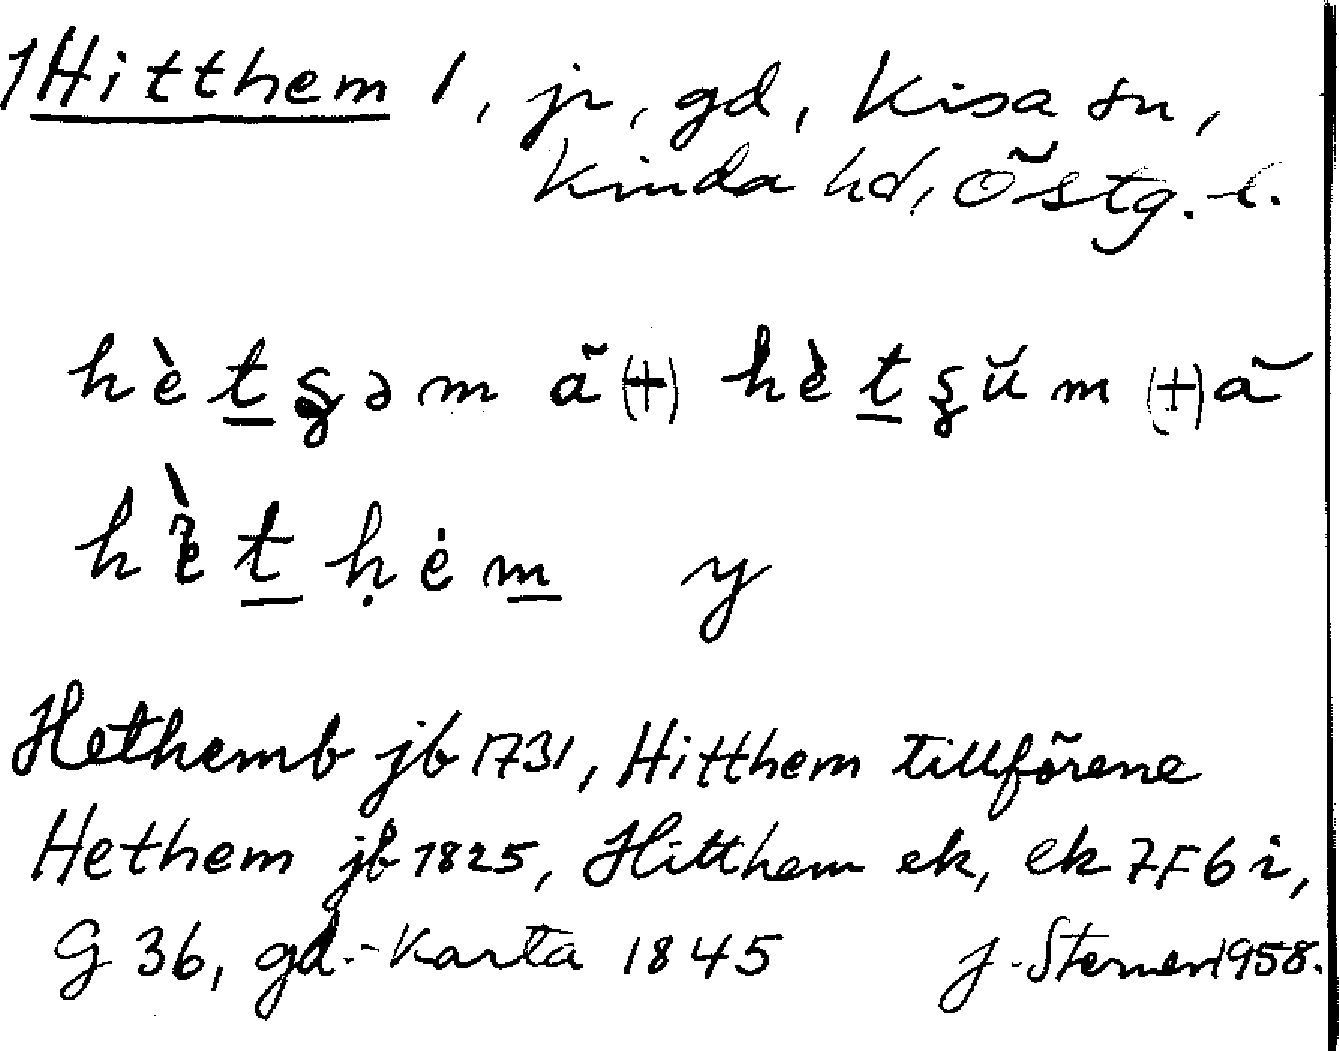 1 Hitthem 1, jr, gd, Kisa sn,
Kinda hd, Östg. l.
hètʂəm ä (+) hètʂŭm (+) ä
hèt ḥėm y
Hethemb jb 1731, Hitthem tillförene
Hethem jb 1825, Hitthem ek, ek 7F6i,
G 36, gd.-Karta 1845 J. Sterner 1958.